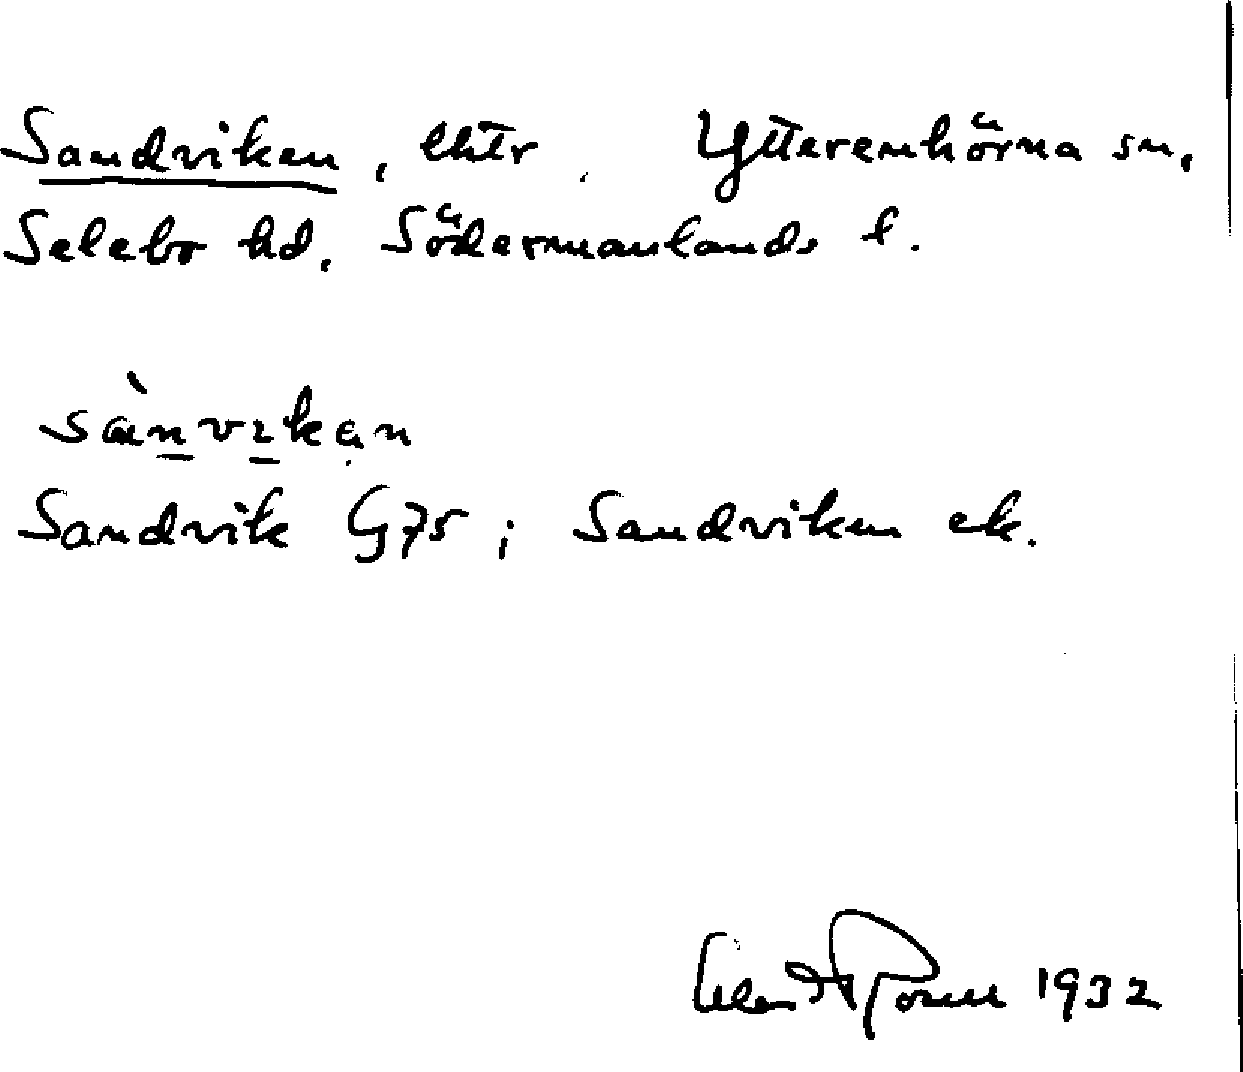 Sandviken, lht‾r. Ytterenhörna sn,
Selebo hd, Södermanlands l.
sànvikən
Sandvik G75; Sandviken ek.
1932